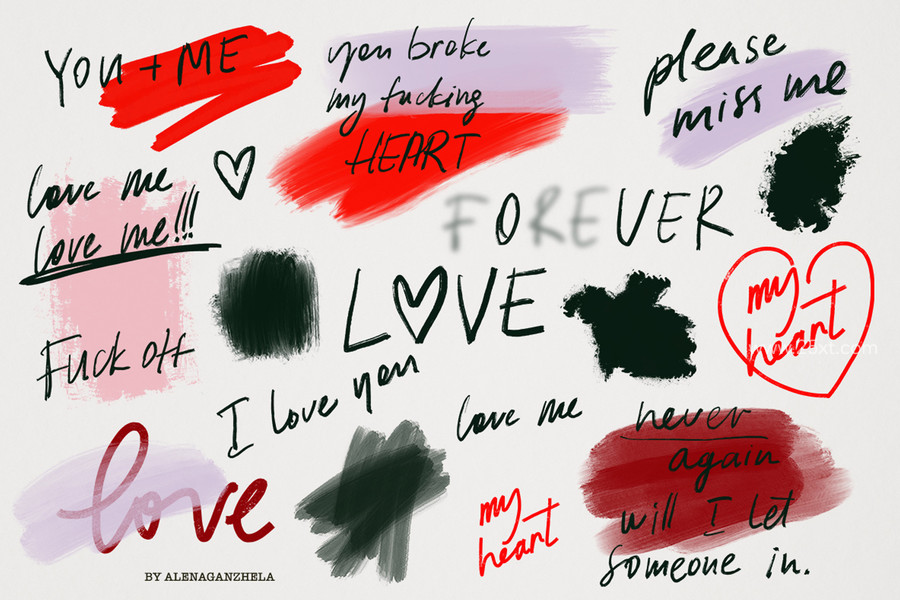 You + ME
you broke
my fucking
HEART
please
miss me
love me
love me!!!
FOREVER
LOVE
my
heart
Fuck off
I love you
love me
never
again
will I let
someone in.
love
my
heart
BY ALENAGANZHELA